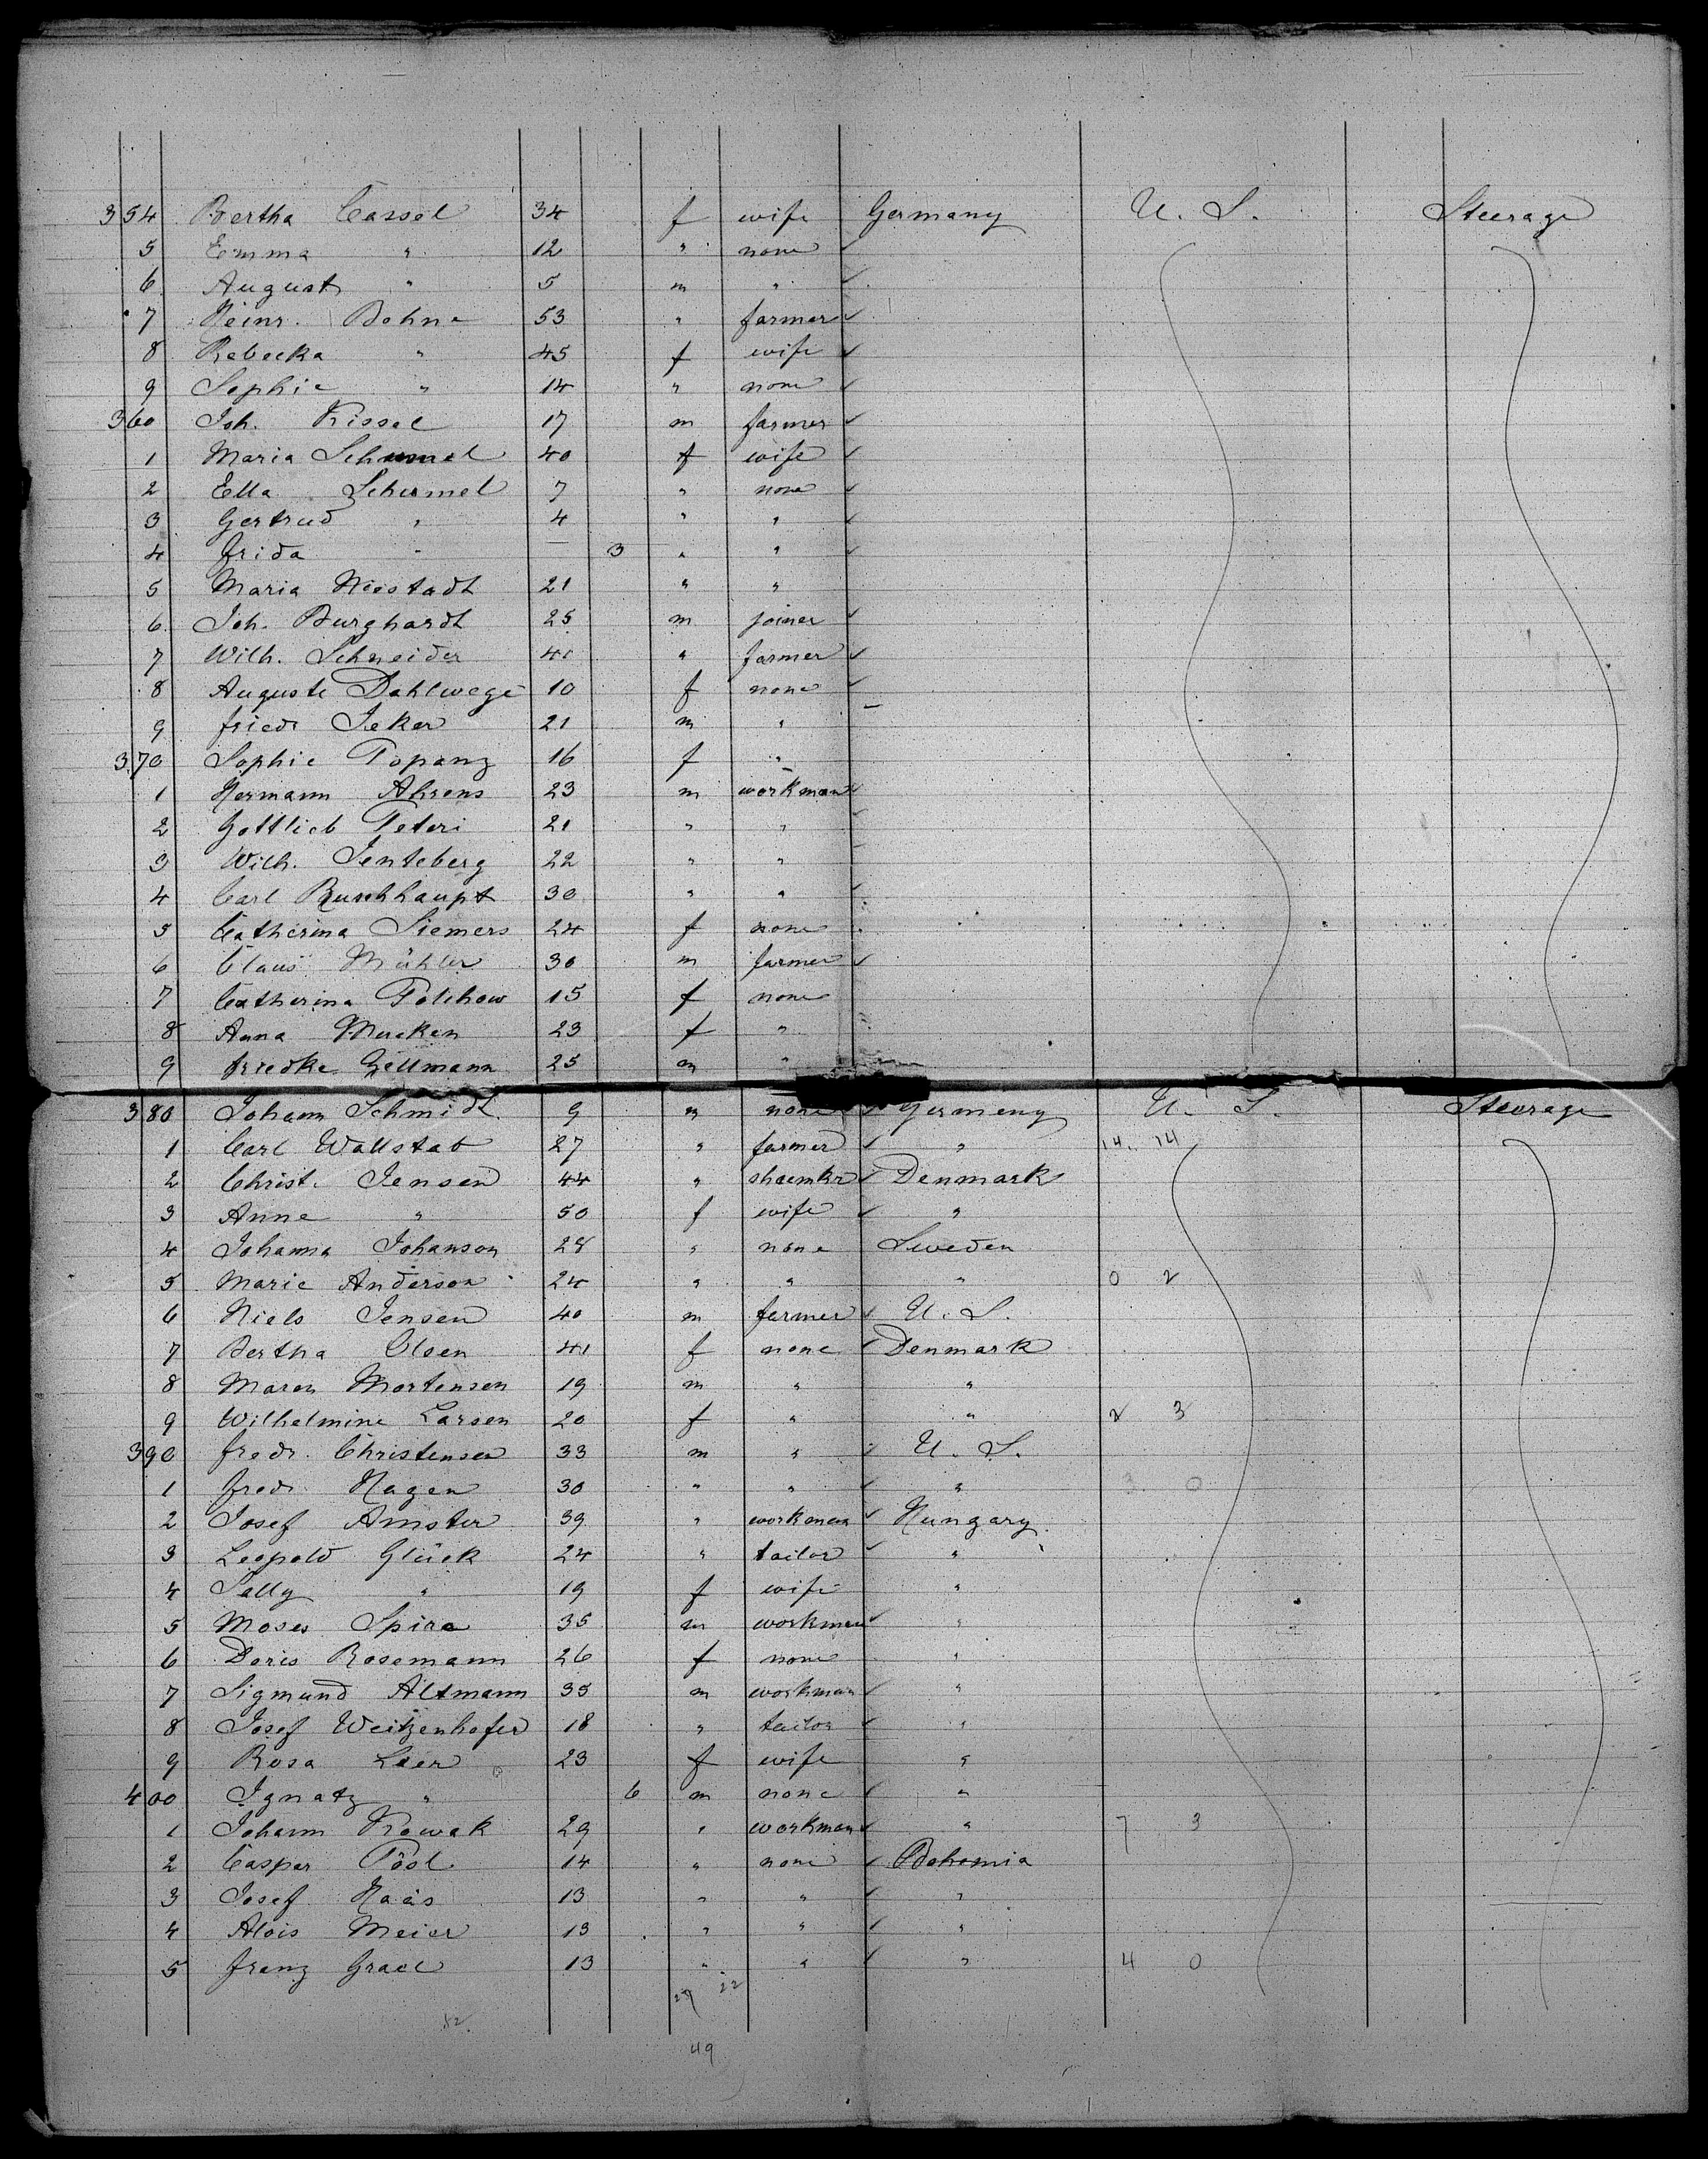 354 Bertha Cassel 34 f wife Germany U. S. Steerage
5 Emma " 12 " none
6 August " 5 m "
7 Heinr. Bohne 53 " farmer
8 Rebecka " 45 f wife
9 Sophie " 14 " none
360 Joh. Kissel 17 m farmer
1 Maria Schermel 40 f wife
2 Ella Schermel 7 " none
3 Gertrud " 4 " "
4 Frida " 3 " "
5 Maria Niestadt 21 " "
6 Joh. Burghardt 25 m joiner
7 Wilh. Schneider " farmer
8 Auguste Dahlwege 10 f none
9 Friedr Jeker 21 m "
370 Sophie Popanz 16 f "
1 Hermann Ahrens 23 m workman
2 Gottlieb Peteri 21 " "
3 Wilh. Jenteberg 22 " "
4 Carl Buschhaupt 30 " "
5 Catherina Siemers 24 f none
6 Claus Mühler 30 m farmer
7 Catherina Polchow 15 f none
8 Anna Mucken 23 f "
9 Friedke Gellmann 25 m "
380 Johann Schmidt 9 " none Germany U. S. Steerage
1 Carl Wallstab 27 " farmer " 14 14
2 Christ. Jensen 44 " shoemkr Denmark
3 Anne " 50 f wife "
4 Johanna Johanson 28 " none Sweden
5 Marie Anderson 24 " " " 0 2
6 Niels Jensen 40 m farmer U. S.
7 Bertha Olsen 41 f none Denmark
8 Maren Mortensen 19 m " "
9 Wilhelmine Larsen 20 f " " 2 3
390 Fredr. Christensen 33 m " U. S.
1 Fredr. Hagen 30 " " " 3 0
2 Josef Amster 39 " workman Hungary
3 Leopold Glück 24 " tailor "
4 Sally " 19 f wife "
5 Moses Spira 35 m workman "
6 Doris Rosemann 26 f none "
7 Sigmund Altmann 35 m workman "
8 Josef Weitzenhofer 18 " tailor "
9 Rosa Leer 23 f wife "
400 Ignatz " 6 m none "
1 Johann Nowak 29 " workman " 7 3
2 Caspar Pösl 14 " none Bohemia
3 Josef Haas 13 " " "
4 Alois Meier 13 " " "
5 Franz Grael 13 " " " 4 0
22
49